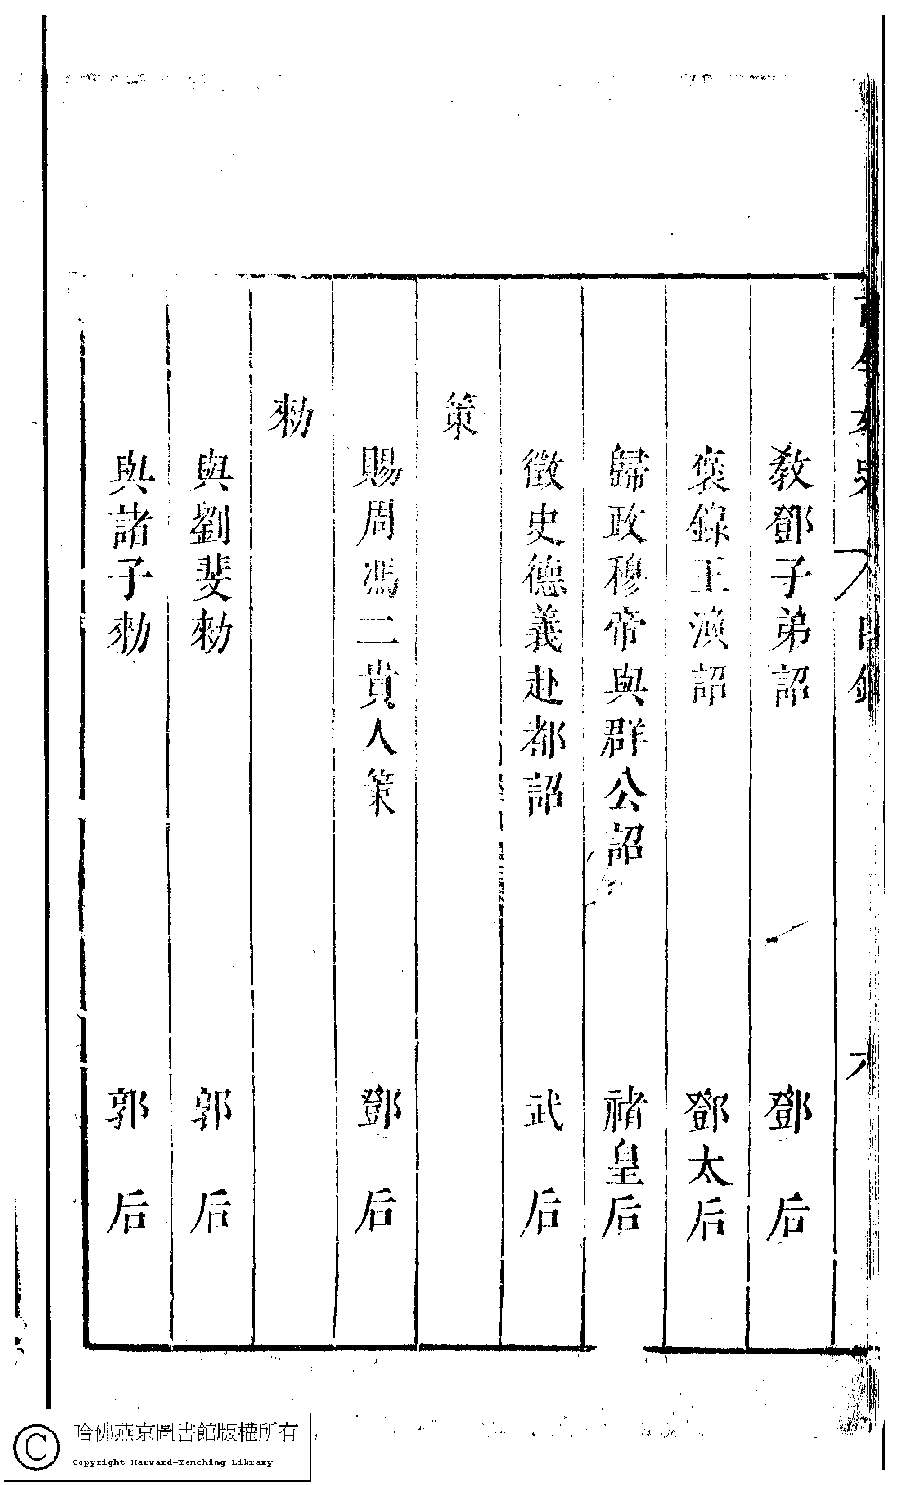 教鄧子弟詔　鄧后
褒錄王演詔　鄧太后
歸政穆帝與群公詔　禇皇后
徵史德義赴都詔　武后
策
賜周馮二貴人策　鄧后
勑
與劉斐勑　郭后
與諸子勑　郭后
哈佛燕京圖書館版權所有
Copyright Harvard-Yenching Library